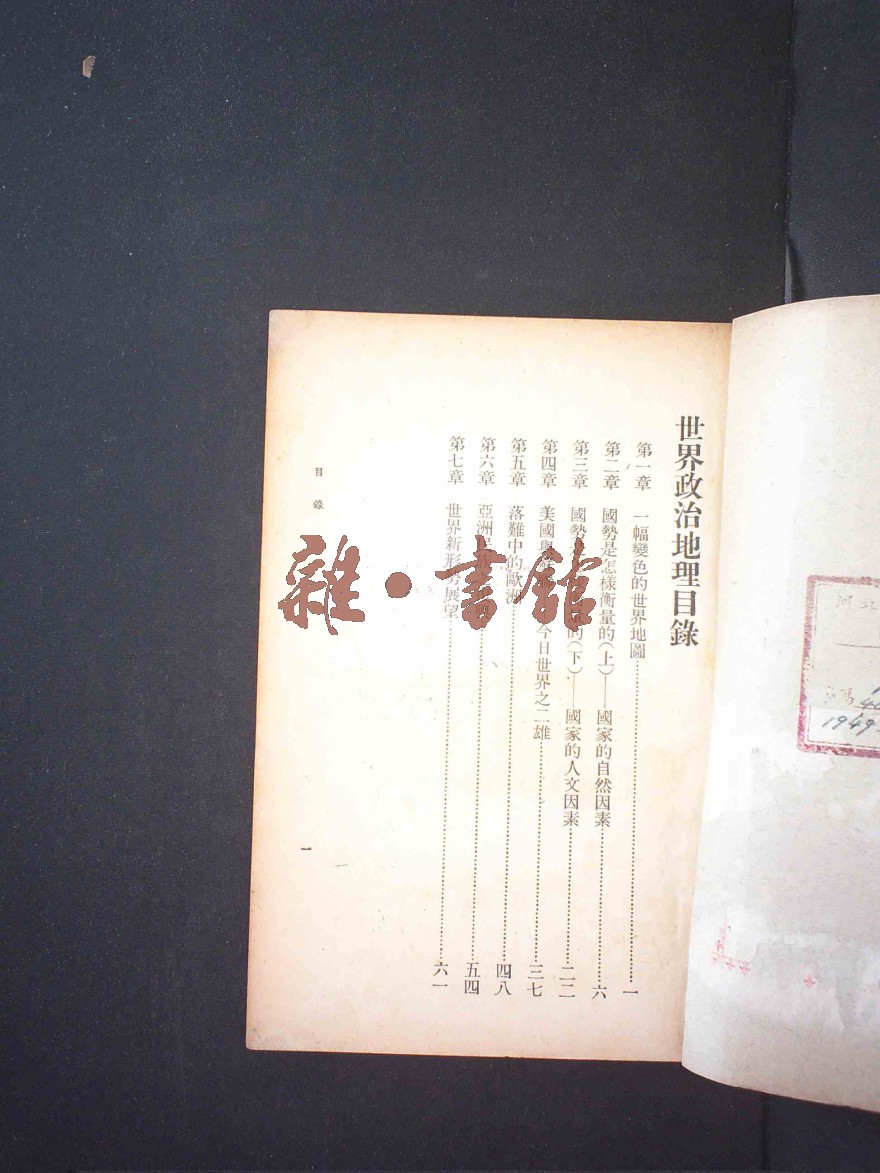 世界政治地理目錄
第一章 一幅變色的世界地圖 一
第二章 國勢是怎樣衡量的(上)——國家的自然因素 六
第三章 國勢 的(下)——國家的人文因素 二二
第四章 美國與 今日世界之二雄 三七
第五章 落難中的歐洲 四八
第六章 亞洲 五四
第七章 世界新形勢展望 六一
目錄
一
雜·書館
河北
1949